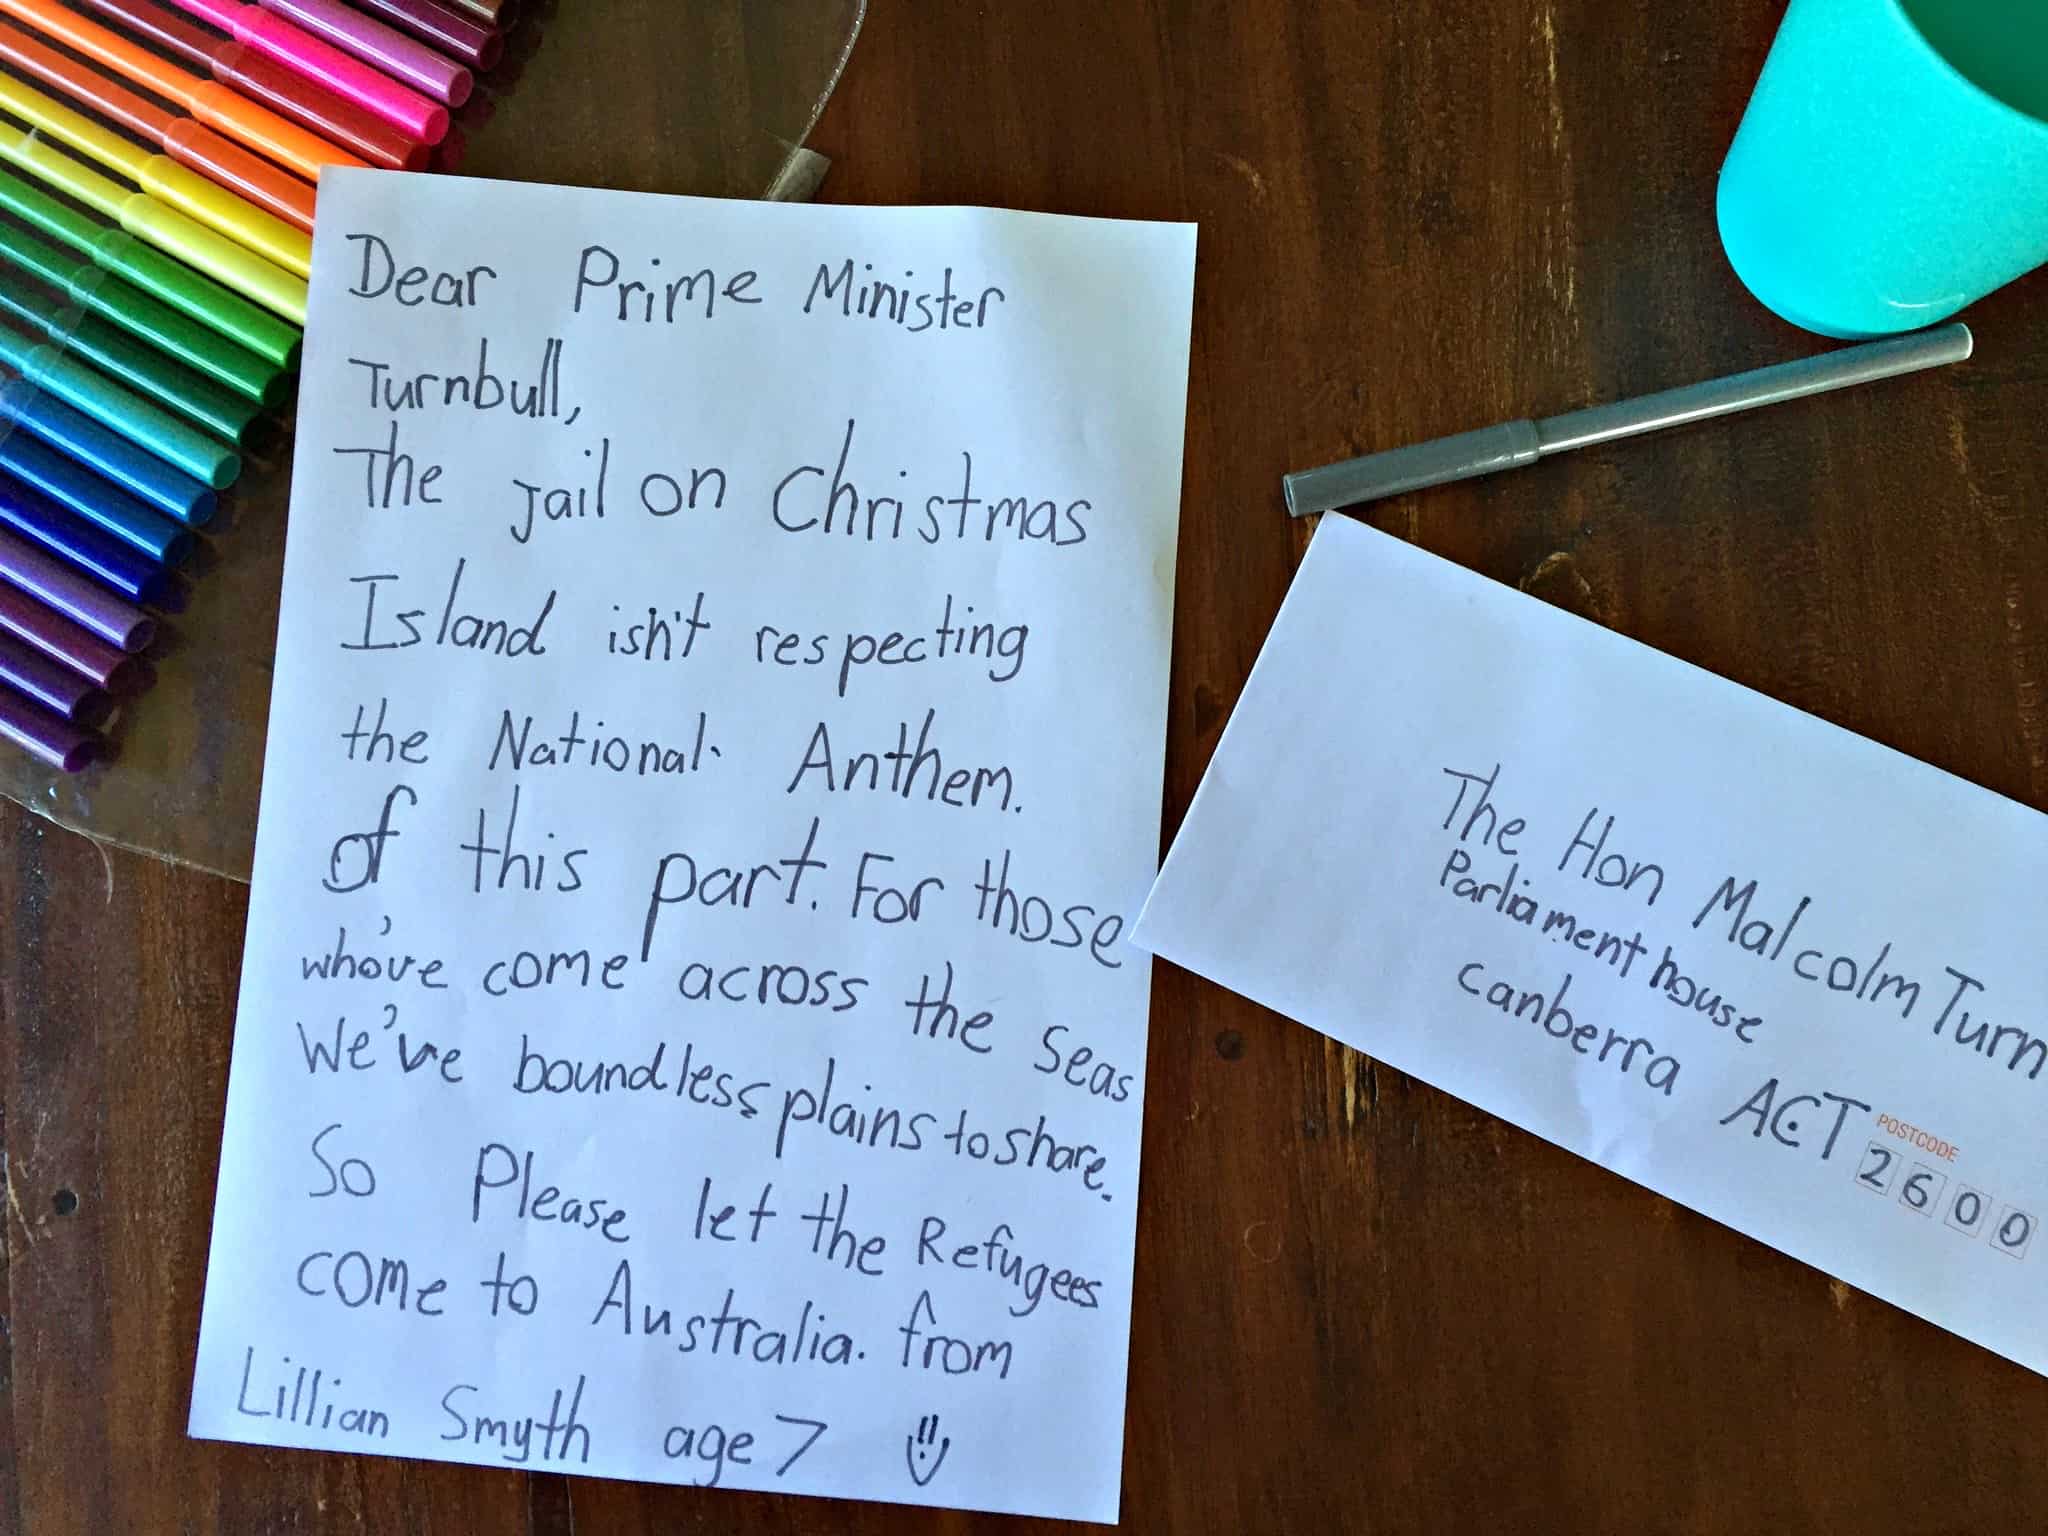 Dear Prime Minister
Turnbull,
The jail on Christmas
Island isn't respecting
the National Anthem.
of this part. For those
who've come across the Seas
We've boundless plains to share.
So Please let the Refugees
come to Australia. from
Lillian Smyth age 7
The Hon Malcolm Turn
Parliament house
Canberra ACT
POSTCODE
2600